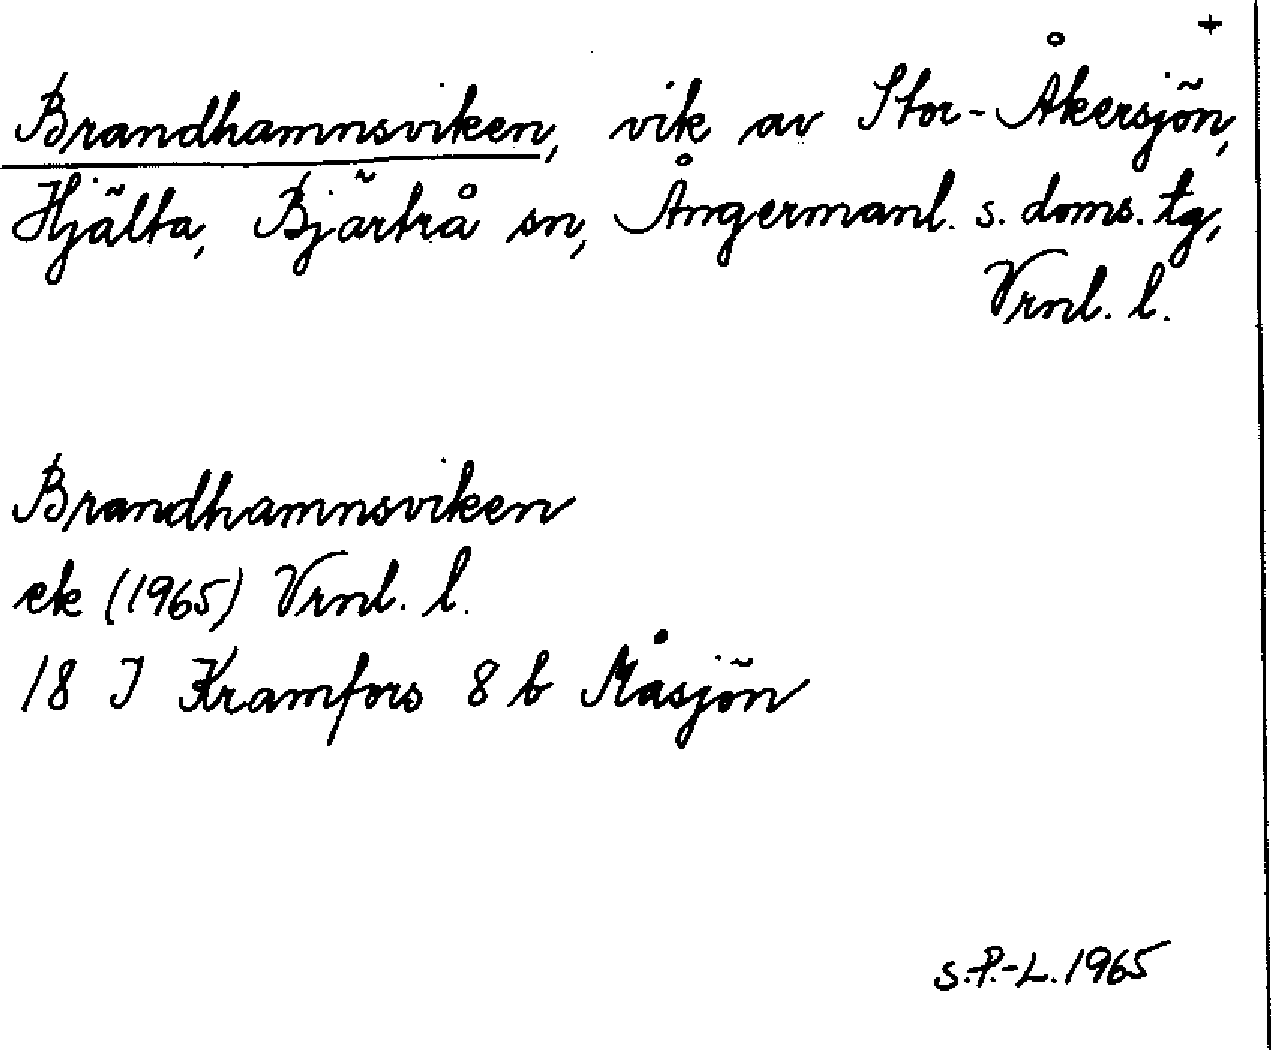 +
Brandhamnsviken, vik av Stor-Åkersjön,
Hjälta, Bjärtrå sn, Ångermanl. s. doms. tg,
Vrnl. l.
Brandhamnsviken
ek (1965) Vrnl. l.
18 J Kramfors 8 b Måsjön
S.P.-L. 1965